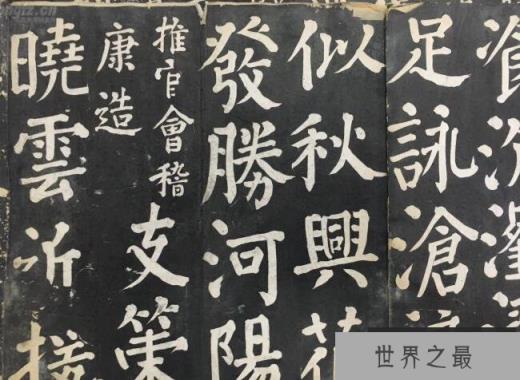 沆瀣
足詠滄
似秋興花
發勝河陽
推官會稽
康造
支策
曉雲近援
世界之最